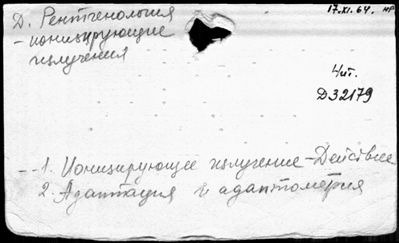 17.XI.64. нр
Д. Рентгенология
- ионизирующие
излучения
Чит.
D32179
1. Ионизирующее излучение - Действие
2. Адаптация и адаптометрия